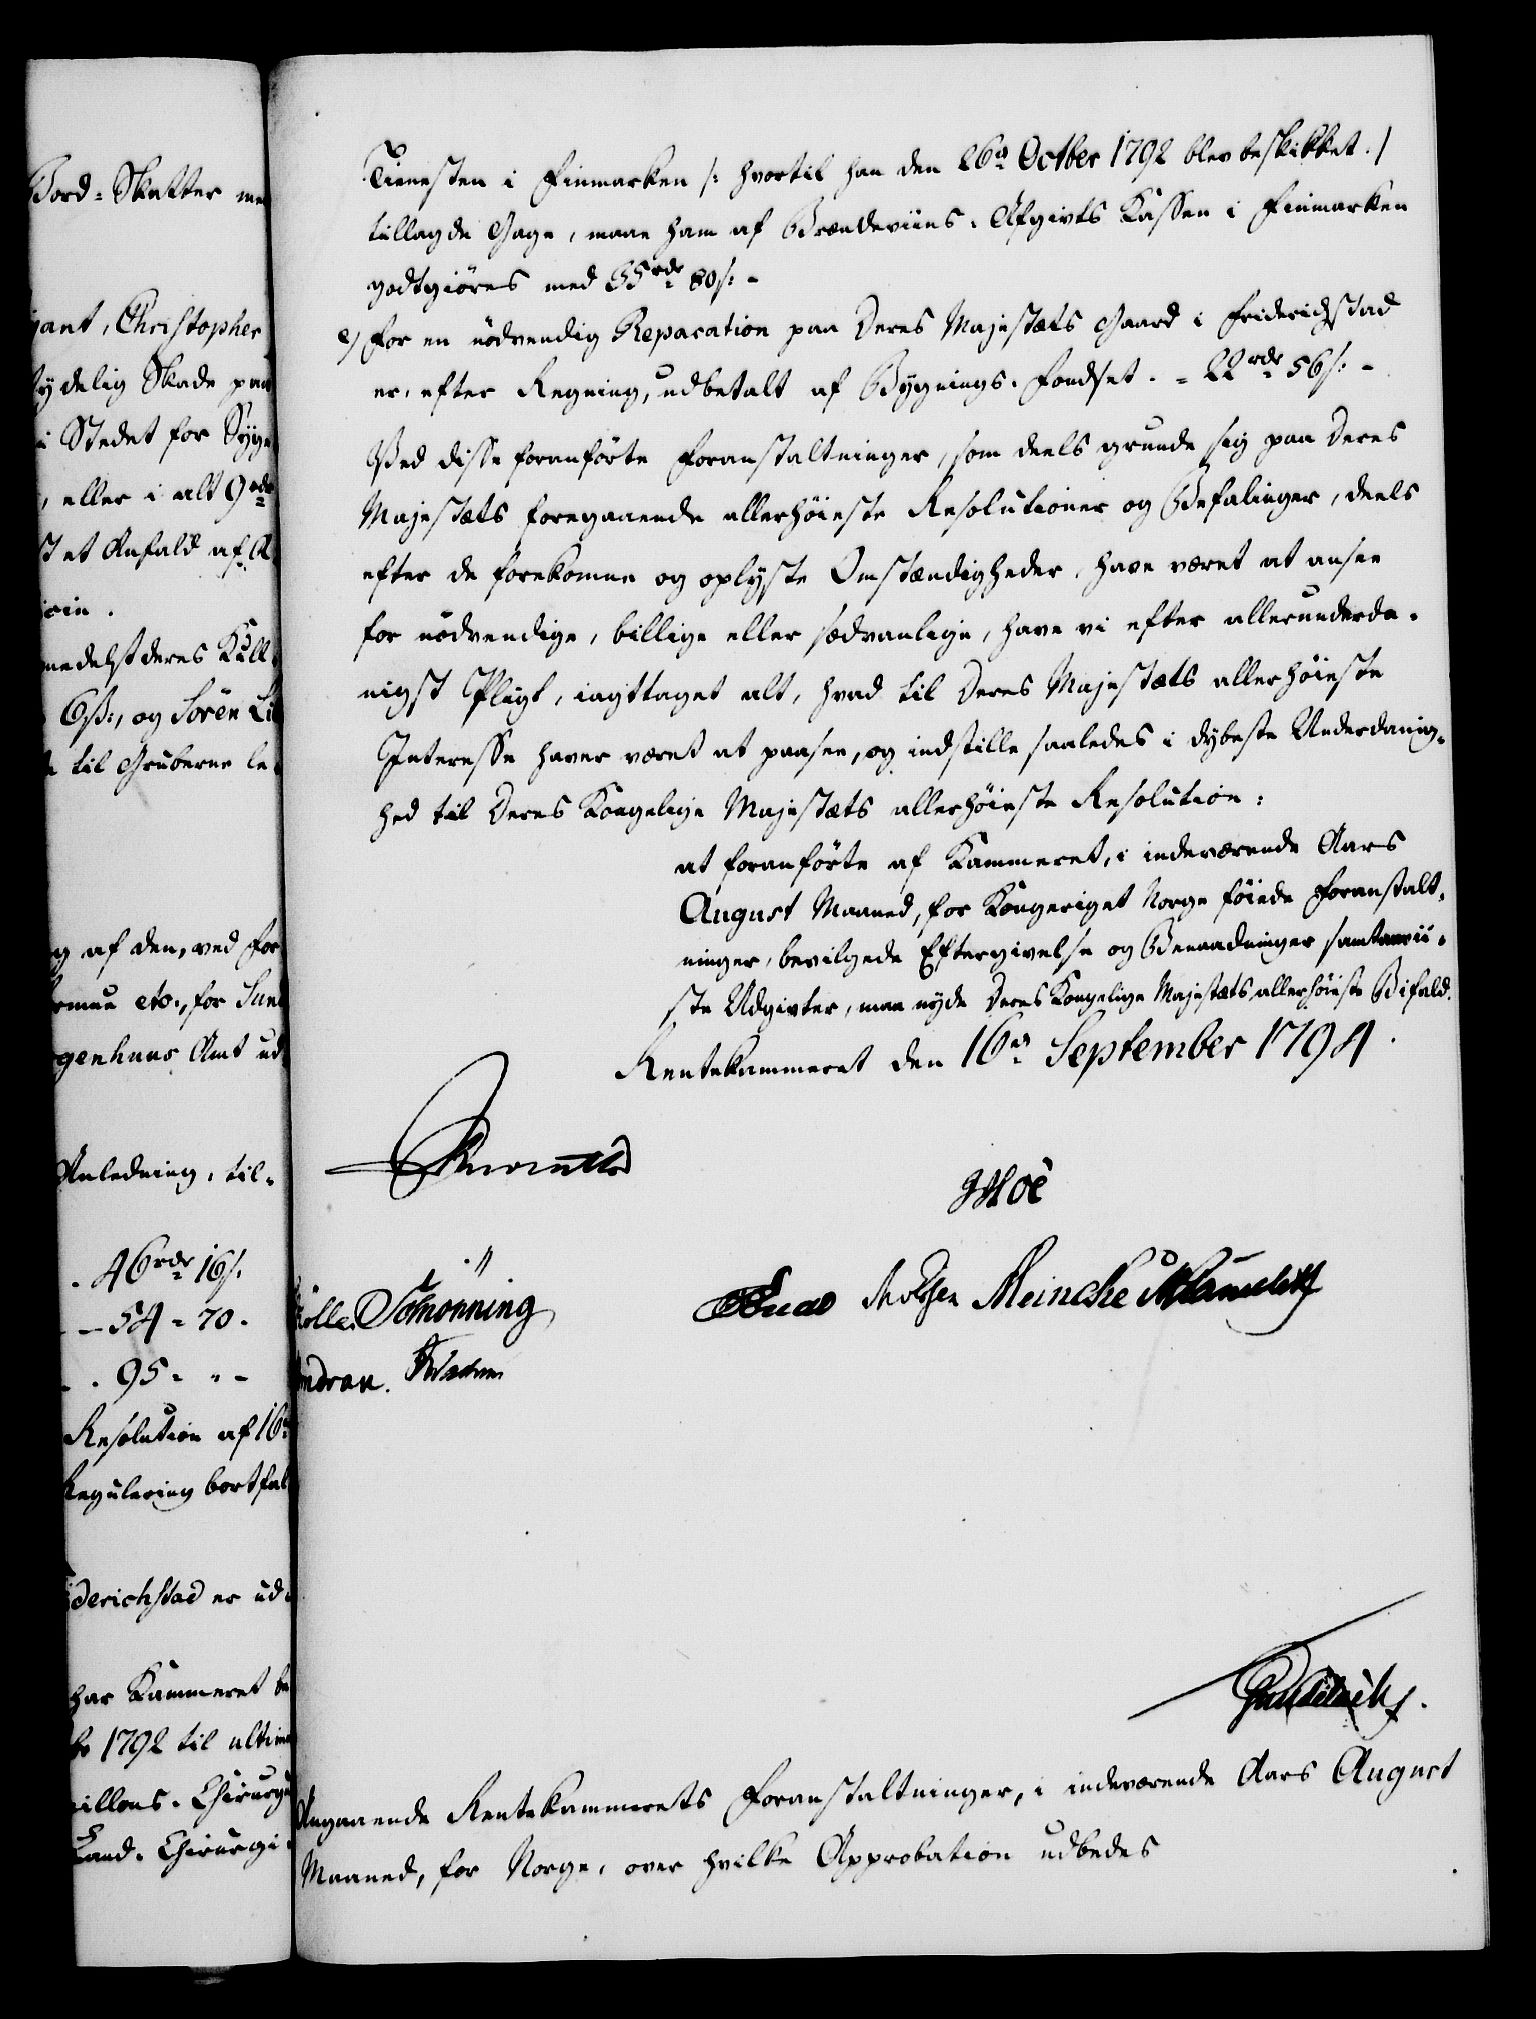 Bord-Skatter me
gant, Christopher
tydelig Skade paa
i Stedet for Syge
, eller i alt 9 rdr
st et Anfald af
medelst deres Kull
6 s:, og Sören Li
til Gruberne le
g af den, ved For
etc:, for Sun
genhuus Amt ud
Anledning, til-
- 46 rdr 16 s.
- - 54 - 70.
- - 95 - " -
Resolution af 16
Regulering bortfal
iderichstad er ud-
har Kammeret be
br 1792 til ultim
illons-Chirurgu
Land-Chirurgi-
Tienesten i Finmarken /: hvortil han den 26de Octbr 1792 blev beskikket. /
tillagde Gage, maae ham af Brændeviins-Afgivts Kassen i Finmarken
godtgiöres med 55 rdr 80 s: -
e) For en nödvendig Reparation paa Deres Majestæts Gaard i Friderichstad
er, efter Regning, udbetalt af Bygnings-Fondset. - 22 rdr 56 s: -
Ved disse foranförte Foranstaltninger, som deels grunde sig paa Deres
Majestæts foregaaende allerhöieste Resolutioner og Befalinger, deels
efter de forekomne og oplyste Omstændigheder, have været at ansee
for nödvendige, billige eller sædvanlige, have vi efter allerunderda-
nigst Pligt, iagttaget alt, hvad til Deres Majestæts allerhöieste
Interesse haver været at paasee, og indstille saaledes i dybeste Underdanig-
hed til Deres Kongelige Majestæts allerhöieste Resolution:
at foranförte af Kammeret, i indeværende Aars
August Maaned, for Kongeriget Norge föiede Foranstalt-
ninger, bevilgede Eftergivelse og Benaadninger samt anvii-
ste Udgivter, maa nyde Deres Kongelige Majestæts allerhöieste Bifald.
Rentekammeret den 16de September 1794.
Moe
Schönning Meincke
Angaaende Rentekammerets Foranstaltninger, i indeværende Aars August
Maaned, for Norge, over hvilke Approbation udbedes